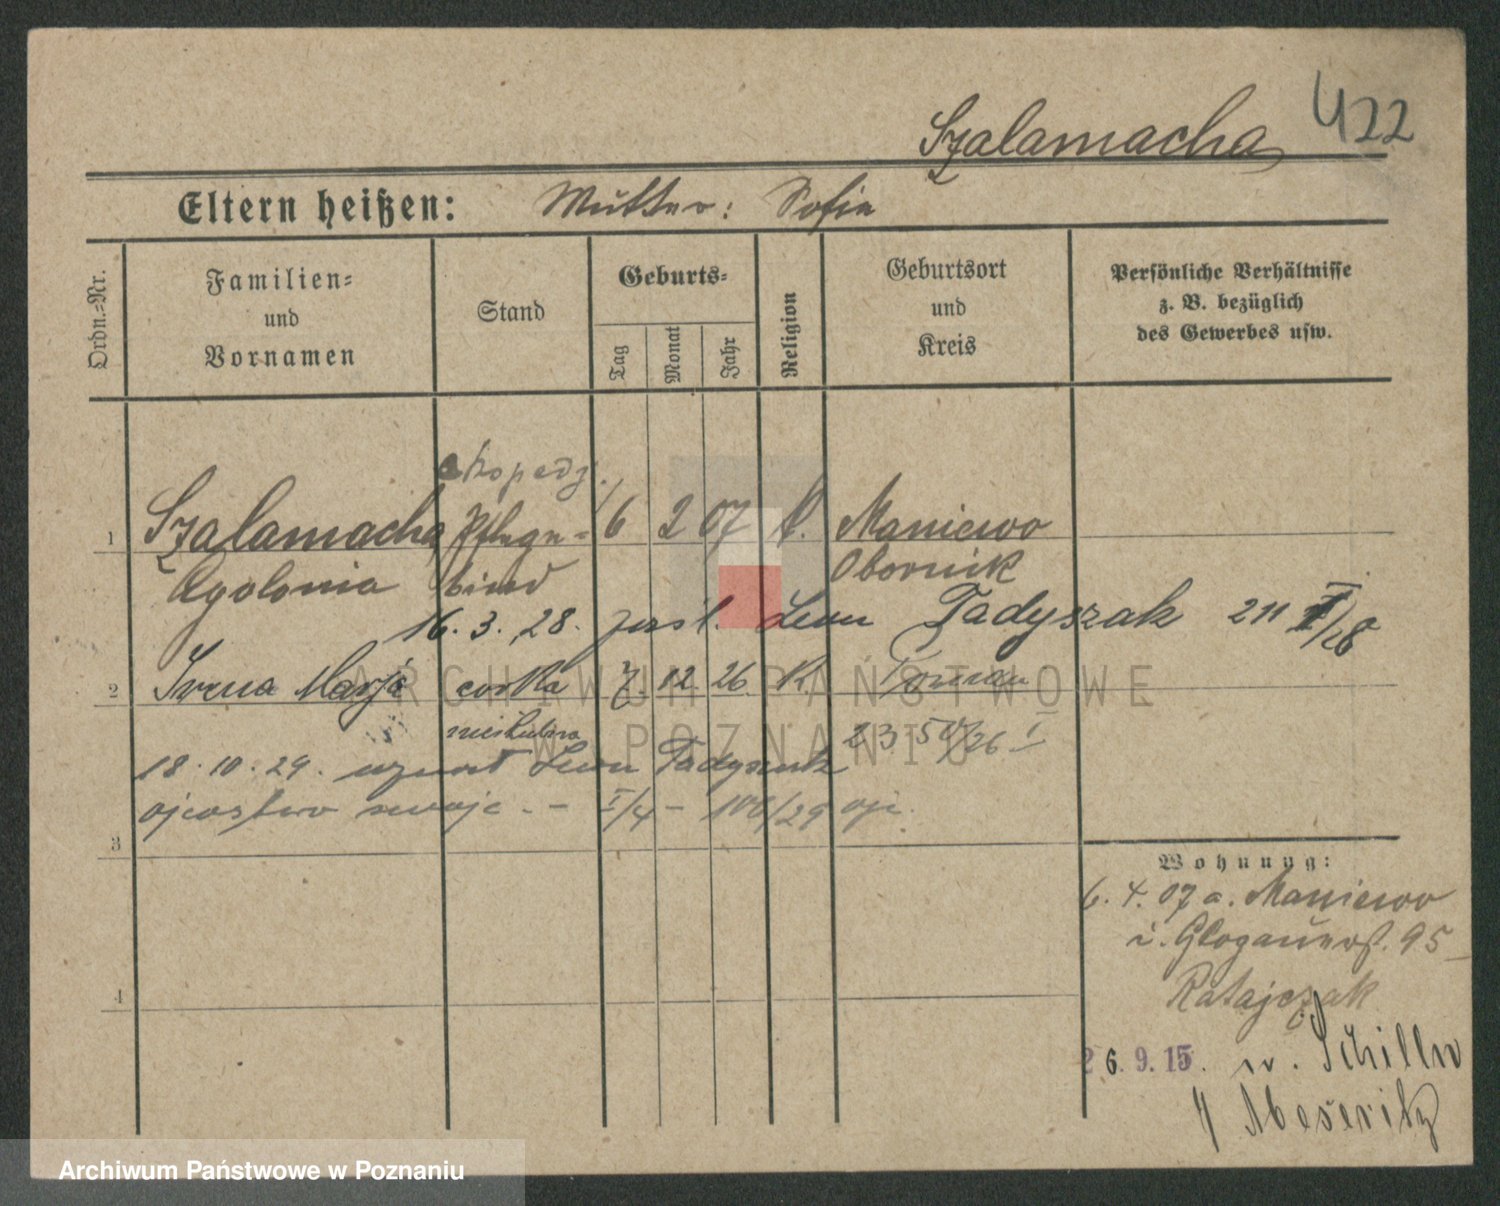 422
Szalamacha
Eltern heißen: Mutter: Sofie
Ordn.-Nr.
Familien-
und
Vornamen
Stand
Geburts-
Tag
Monat
Jahr
Religion
Geburtsort
und
Kreis
Persönliche Verhältnisse
z. B. bezüglich
des Gewerbes usw.
ekspedj.
1 Szalamacha Pflege- 6 2 07 k. Maniewo
Apolonia kind Obornik
16. 3. 28. Leon Tadyszak 211 I/28
2 Irena Marja corka 7. 12. 26 K. Poznan
nieślubna 26 I
18. 10. 29. uznał Leon Tadyszak
ojcostwo swoje. - I/4 - 106/29 op.
3
4
Wohnung:
6. 4. 07 a. Maniewo
i. Glogauerst. 95
Ratajczak
26. 9. 15. n. Schiller
4 Meseritz
ARCHIWUM PAŃSTWOWE
W POZNANIU
Archiwum Państwowe w Poznaniu